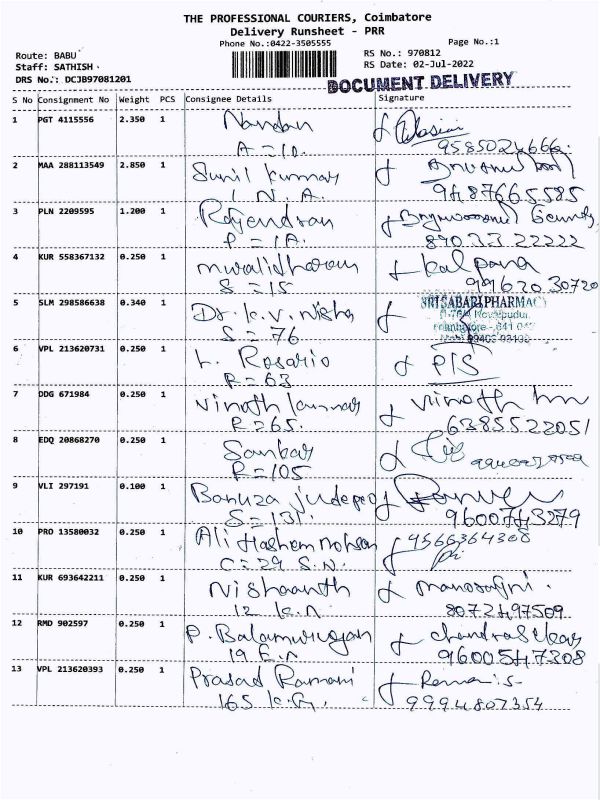 THE PROFESSIONAL COURIERS, Coimbatore
Delivery Runsheet - PRR
Phone No.:0422-3505555
Page No.:1
Route: BABU
RS No.: 970812
Staff: SATHISH
RS Date: 02-Jul-2022
DRS No.: DCJB97081201
DOCUMENT DELIVERY
S No Consignment No Weight PCS Consignee Details Signature
1 PGT 4115556 2.350 1 Nandan
A = 10. 9585024666.
2 MAA 288113549 2.850 1 Sunil Kumar
1 N. A. 9487665585
3 PLN 2209595 1.200 1 Rajendran
P = 1A. 89033 22222
4 KUR 558367132 0.250 1 muralidharan Kalpana
S = 15 99620 30720
5 SLM 298586638 0.340 1 Dr. K. V. Nisha SRI SABARI PHARMACY
S = 76
6 VPL 213620731 0.250 1 L. Rosario P/S
R = 63
7 DDG 671984 0.250 1 Vinoth kumar vinoth
R = 65. 6385522051
8 EDQ 20868270 0.250 1 Sankar
R = 105
9 VLI 297191 0.100 1
S = 131. 9600743279
10 PRO 13580032 0.250 1 Ali Hashem Mohsen 9566364308
C = 29 S. N.
11 KUR 693642211 0.250 1 Nishaanth
12 K. N. 8072497509
12 RMD 902597 0.250 1 P. Balamurugan
19 E. N 9600547308
13 VPL 213620393 0.250 1 Prasad Ramani
165 K. G. 9994807354